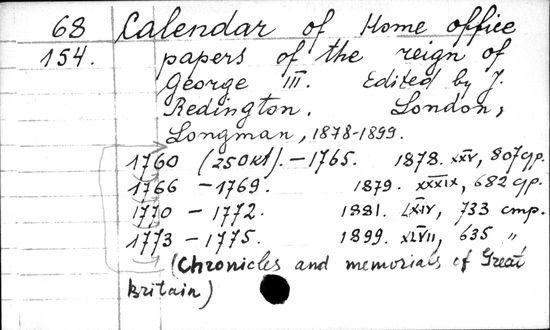 68 Calendar of Home office
154. papers of the reign of
George III. Edited by J.
Redington. London,
Longman, 1878-1899.
1760 (25 okt). - 1765. 1878. XXV, 807 cтр.
1766 - 1769. 1879. XXXIX, 682 cтр.
1770 - 1772. 1881. LXIV, 733 cmp.
1773 - 1775. 1899. XLVII, 635 "
(Chronicles and memorials of Great
Britain)